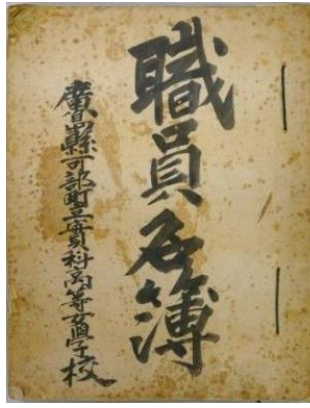 職員名簿
廣島縣可部町立實科高等女學校